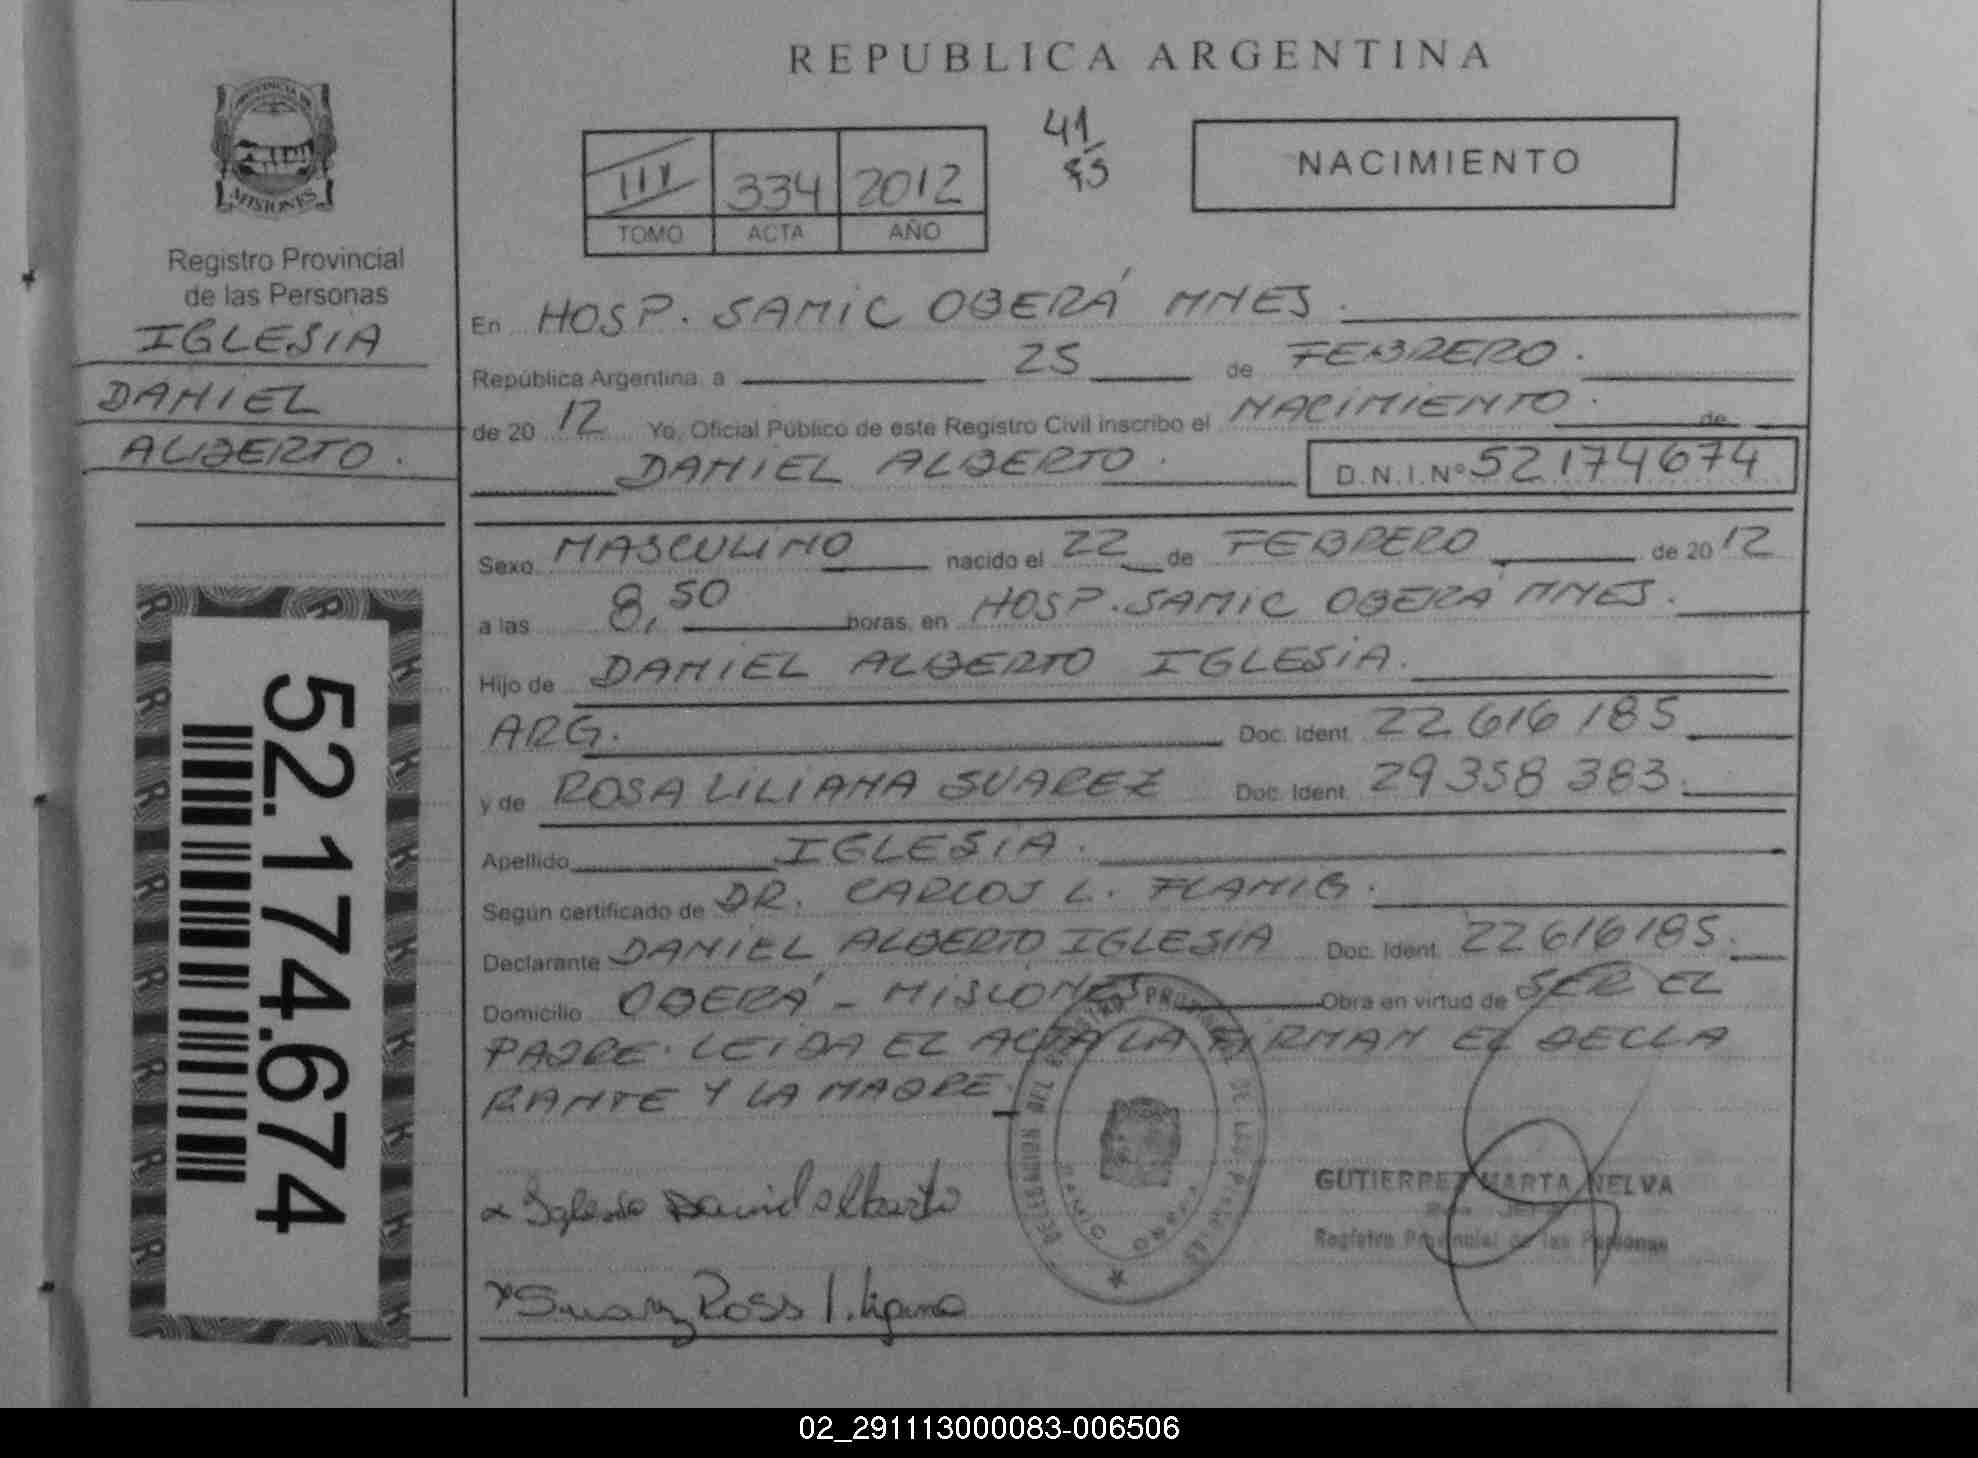 REPUBLICA ARGENTINA
PROVINCIA DE
MISIONES
Registro Provincial
de las Personas
IGLESIA
DANIEL
ALBERTO.
52.174.674
III 334 2012
TOMO ACTA AÑO
41
NACIMIENTO
En HOSP. SAMIC OBERÁ MNES.
República Argentina, a 25 de FEBRERO.
de 20 12 Yo, Oficial Público de este Registro Civil inscribo el NACIMIENTO. de
DANIEL ALBERTO. D.N.I.Nº 52174674
Sexo MASCULINO nacido el 22 de FEBRERO de 20 12
a las 8,50 horas, en HOSP. SAMIC OBERÁ MNES.
Hijo de DANIEL ALBERTO IGLESIA.
ARG. Doc. Ident. 22 616 185
y de ROSA LILIANA SUAREZ Doc. Ident. 29 358 383.
Apellido IGLESIA.
Según certificado de DR. CARLOS L. FLAMIG.
Declarante DANIEL ALBERTO IGLESIA Doc. Ident. 22 616 185.
Domicilio OBERÁ - MISIONES Obra en virtud de SER EL
PADRE. LEIDA EL ACTA LA FIRMAN EL DECLA
RANTE Y LA MADRE.
Iglesia Daniel Alberto
Suarez Rosa
GUTIERREZ MARTA NELVA
Registro Provincial de las Personas
02_291113000083-006506